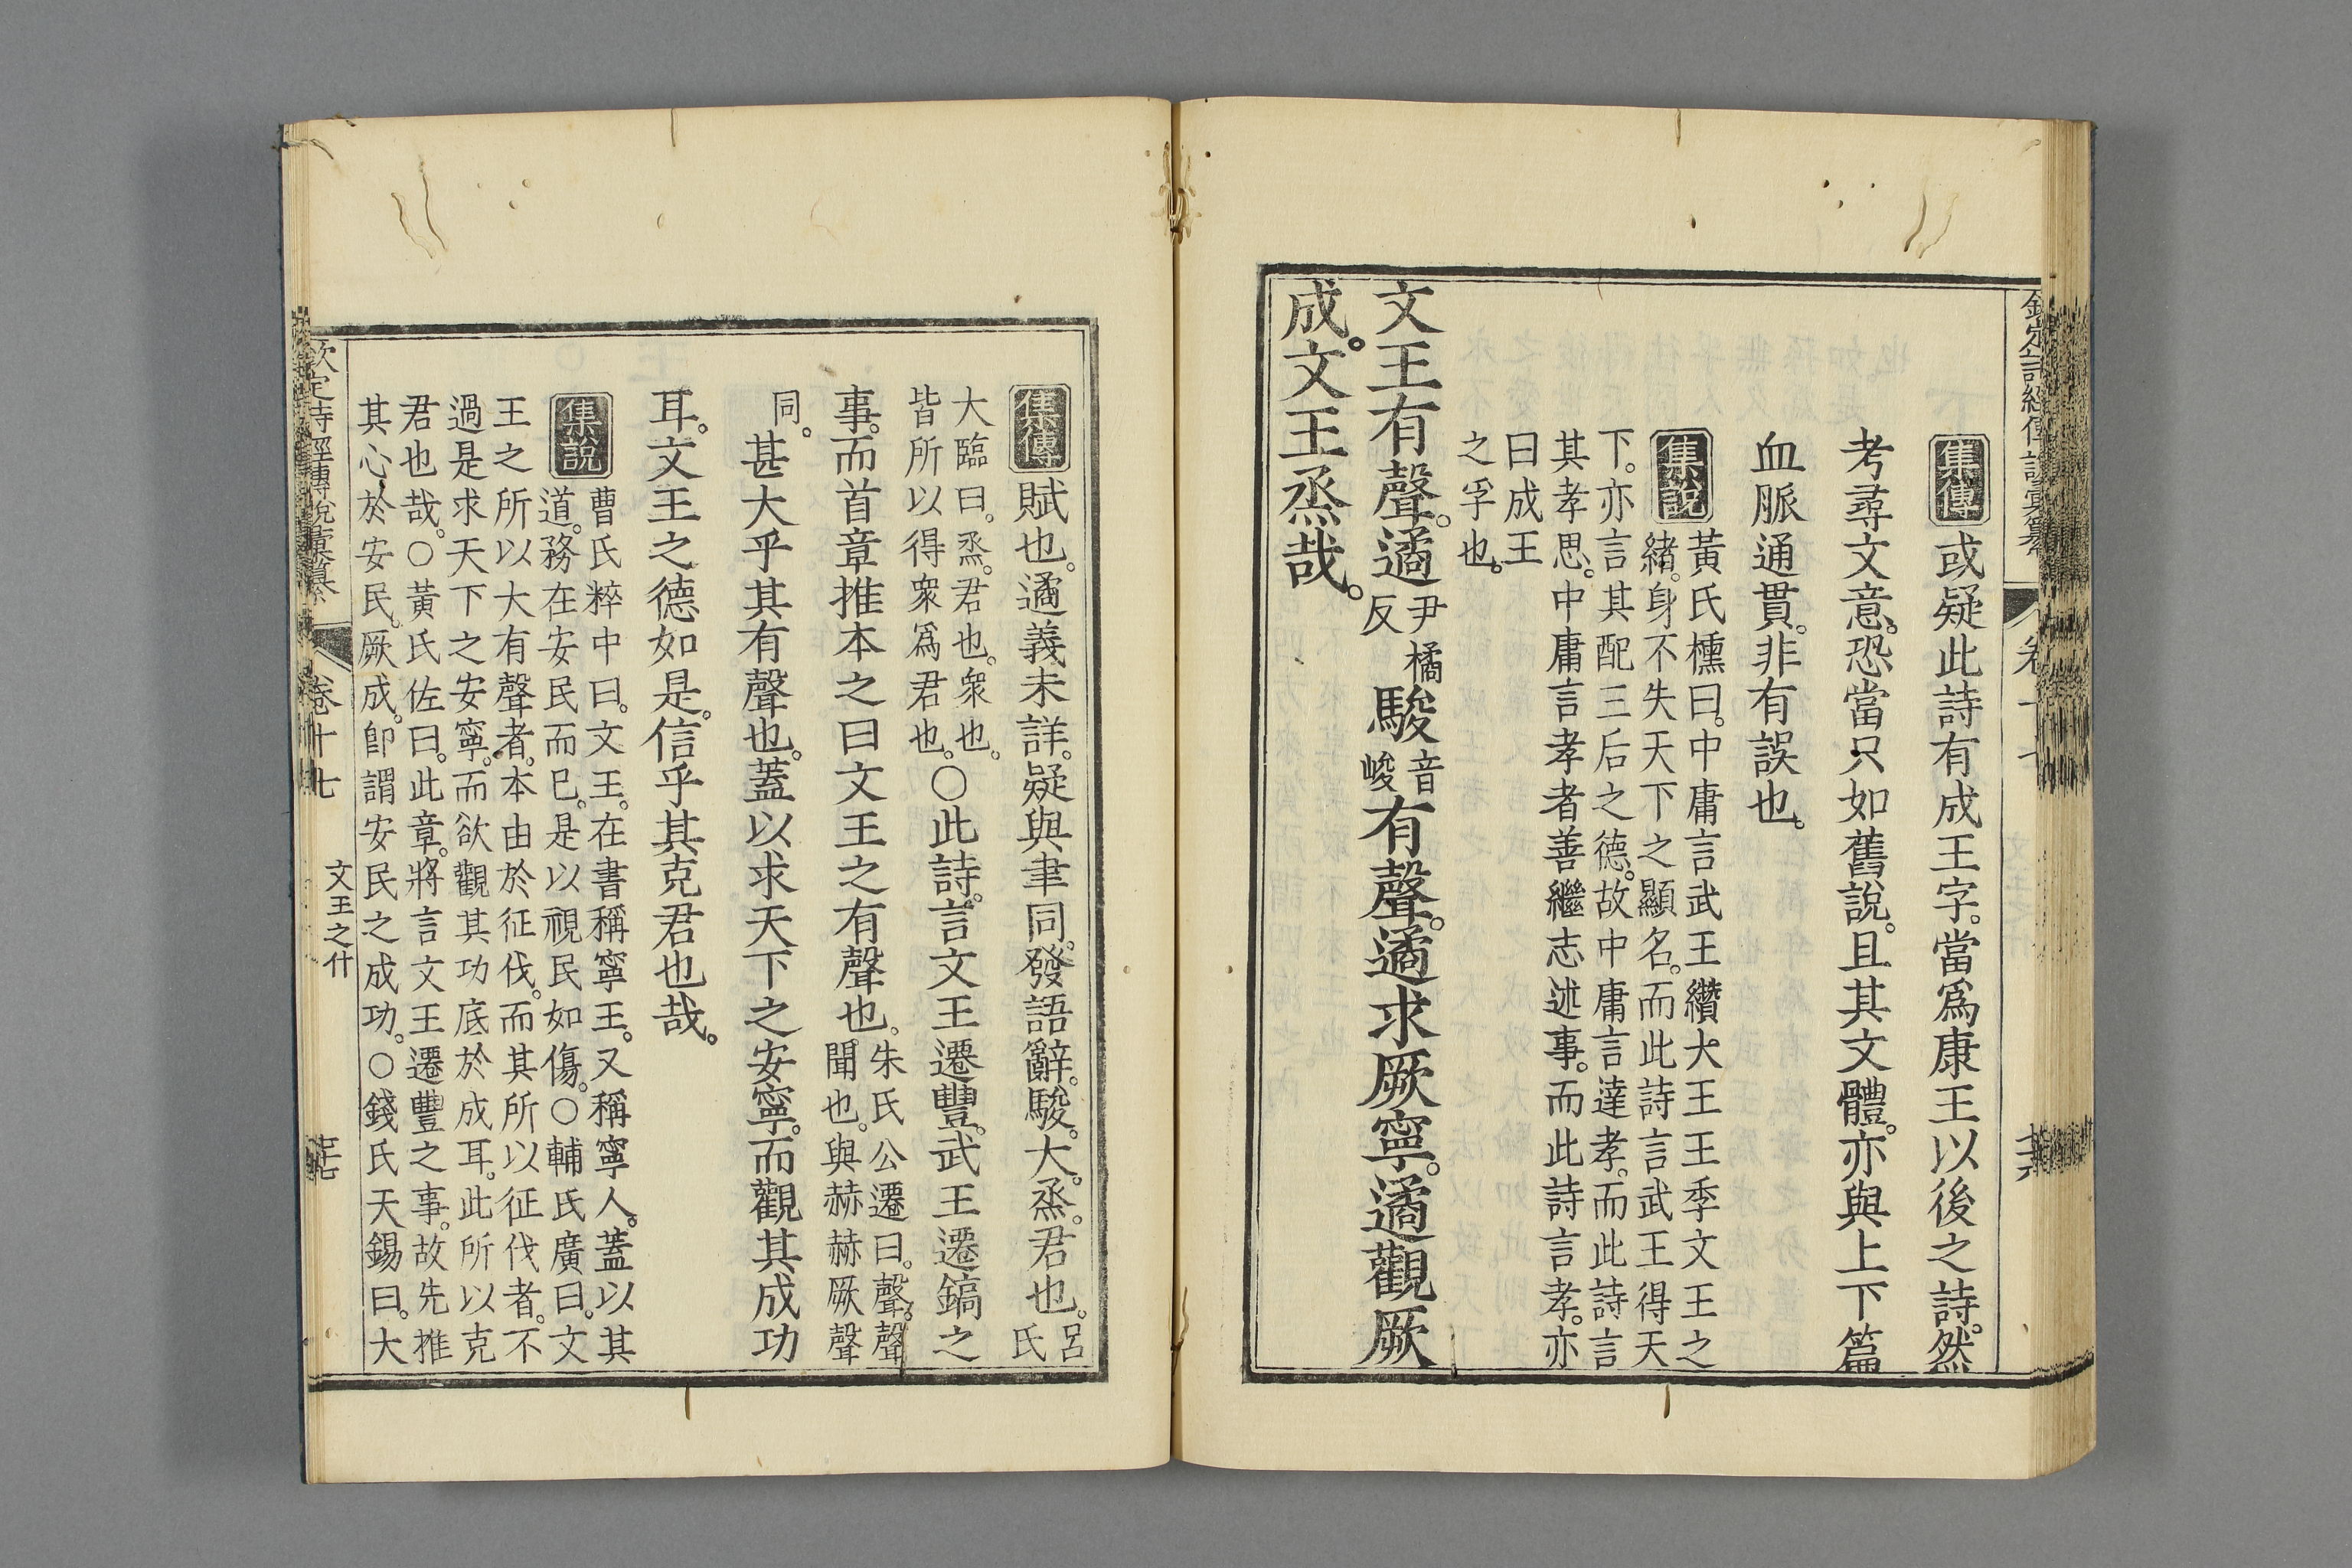 欽定詩經傳說彙纂 卷十七
集傳 或疑此詩有成王字。當爲康王以後之詩。然
考尋文意。恐當只如舊說。且其文體。亦與上下篇
血脈通貫。非有誤也。
集說 黃氏櫄曰。中庸言武王纘大王王季文王之
緒。身不失天下之顯名。而此詩言武王得天
下。亦言其配三后之德。故中庸言達孝。而此詩言
其孝思。中庸言孝者善繼志述事。而此詩言孝。亦
曰成王
之孚也。
文王有聲。遹尹橘反駿音峻有聲。遹求厥寧。遹觀厥
成。文王烝哉。
集傳 賦也。遹義未詳。疑與聿同。發語辭。駿。大。烝。君也。呂氏
大臨曰。烝。君也。衆也。
皆所以得衆爲君也。○此詩。言文王遷豐。武王遷鎬之
事。而首章推本之曰文王之有聲也。朱氏公遷曰。聲。聲聞也。與赫赫厥聲
同。甚大乎其有聲也。蓋以求天下之安寧。而觀其成功
耳。文王之德如是。信乎其克君也哉。
集說 曹氏粹中曰。文王。在書稱寧王。又稱寧人。蓋以其
道。務在安民而已。是以視民如傷。○輔氏廣曰。文
王之所以大有聲者。本由於征伐。而其所以征伐者。不
過是求天下之安寧。而欲觀其功底於成耳。此所以克
君也哉。○黃氏佐曰。此章。將言文王遷豐之事。故先推
其心於安民。厥成。卽謂安民之成功。○錢氏天錫曰。大
欽定詩經傳說彙纂 卷十七 文王之什